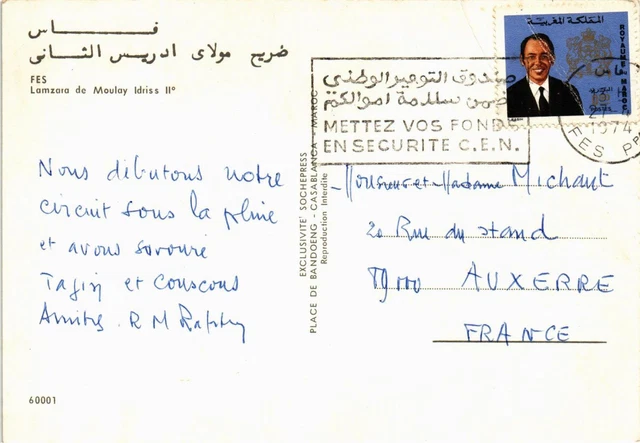 فاس
ضريح مولاي ادريس الثاني
FES
Lamzara de Moulay Idriss II°
Nous débutons notre
circuit sous la pluie
et avons savouré
Tagin et Couscous
Amitiés R M
60001
EXCLUSIVITÉ SOCHEPRESS
PLACE DE BANDOENG - CASABLANCA - MAROC
Reproduction Interdite
المملكة المغربية
ROYAUME DU MAROC
صندوق التوفير الوطني
ضمن سلامة اموالكم
METTEZ VOS FONDS
EN SECURITE C.E.N.
فاس
1974
FES PPAL
Monsieur et Madame Michaut
20 Rue du stand
89000 AUXERRE
FRANCE